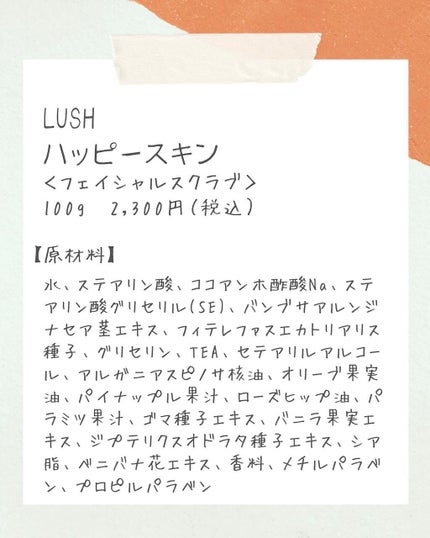 LUSH
ハッピースキン
＜フェイシャルスクラブ＞
100g 2,300円(税込)
【原材料】
水、ステアリン酸、ココアンホ酢酸Na、ステ
アリン酸グリセリル(SE)、バンブサアルンジ
ナセア茎エキス、フィテレファスエカトリアリス
種子、グリセリン、TEA、セテアリルアルコー
ル、アルガニアスピノサ核油、オリーブ果実
油、パイナップル果汁、ローズヒップ油、パ
ラミツ果汁、ゴマ種子エキス、バニラ果実エ
キス、ジプテリクスオドラタ種子エキス、シア
脂、ベニバナ花エキス、香料、メチルパラベ
ン、プロピルパラベン